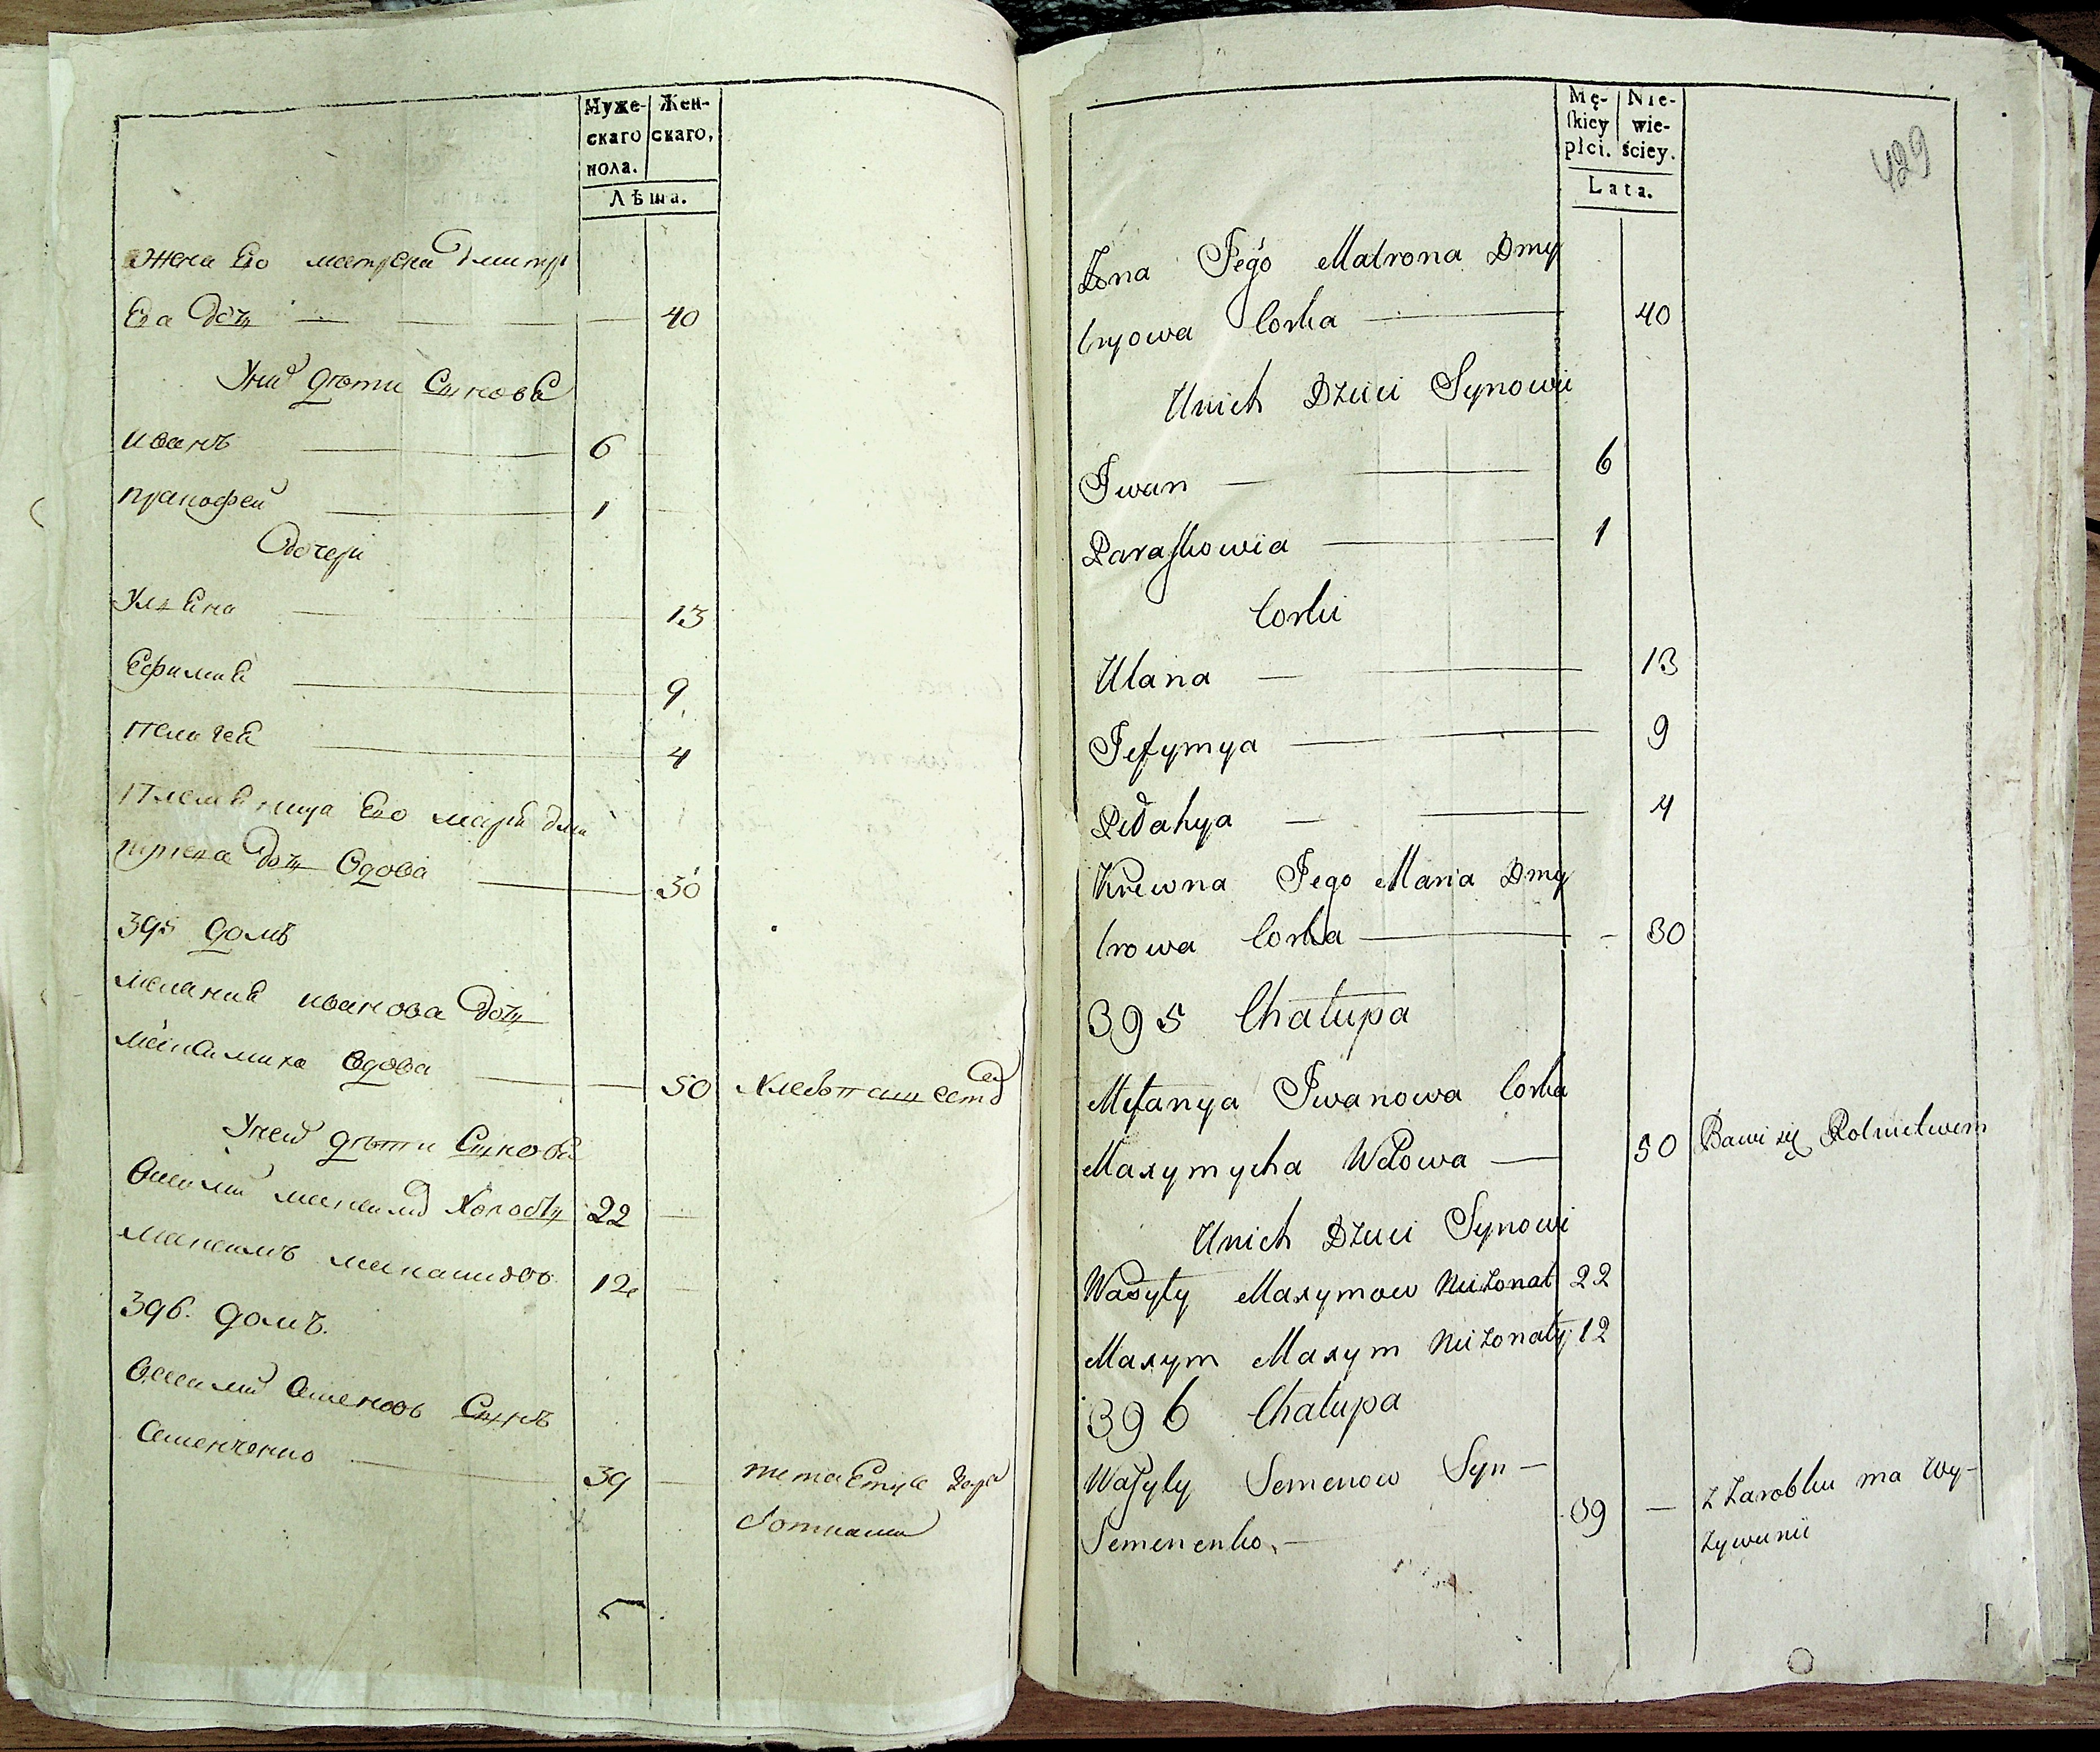 Муже-
скаго
пола.
Жен-
скаго,
Лѣта.
Жена Его матрена дмитр
Ева дочь 40
Уних дѣти Сынове
иванъ 6
пракофеи 1
дочери
Ульяна 13
Ефимия 9
Пелагея 4
Племеница Его мария дми
трнева дочь вдова 30
395 домъ
мелания иванова дочь
максимиха вдова 50 хлебопашеством
Унеи дѣти Сынове
василий максимов холостъ 22
максимъ максимовъ 12
396. домъ.
василий семеновъ Сынъ
семенченко 39
429
Mę-
skiey
płci.
Nie-
wie-
ściey.
Lata.
Żona Jego Matrona Dmy
tryowa Corka 40
Unich Dzieci Synowie
Iwan 6
Paraskowia 1
Corki
Ulana 13
Jefymya 9
Pełahya 4
Krewna Jego Maria Dmy
trowa Corka 30
395 Chałupa
Mełanya Iwanowa Corka
Maxymycha Wdowa 50 Bawi się Rolnictwem
Unich Dzieci Synowi
Wasyly Maxymow Nieżonat 22
Maxym Maxym Nieżonaty 12
396 Chałupa
Wasyly Semenow Syn
Semenenko 39 z Zarobku ma wy-
żywienie